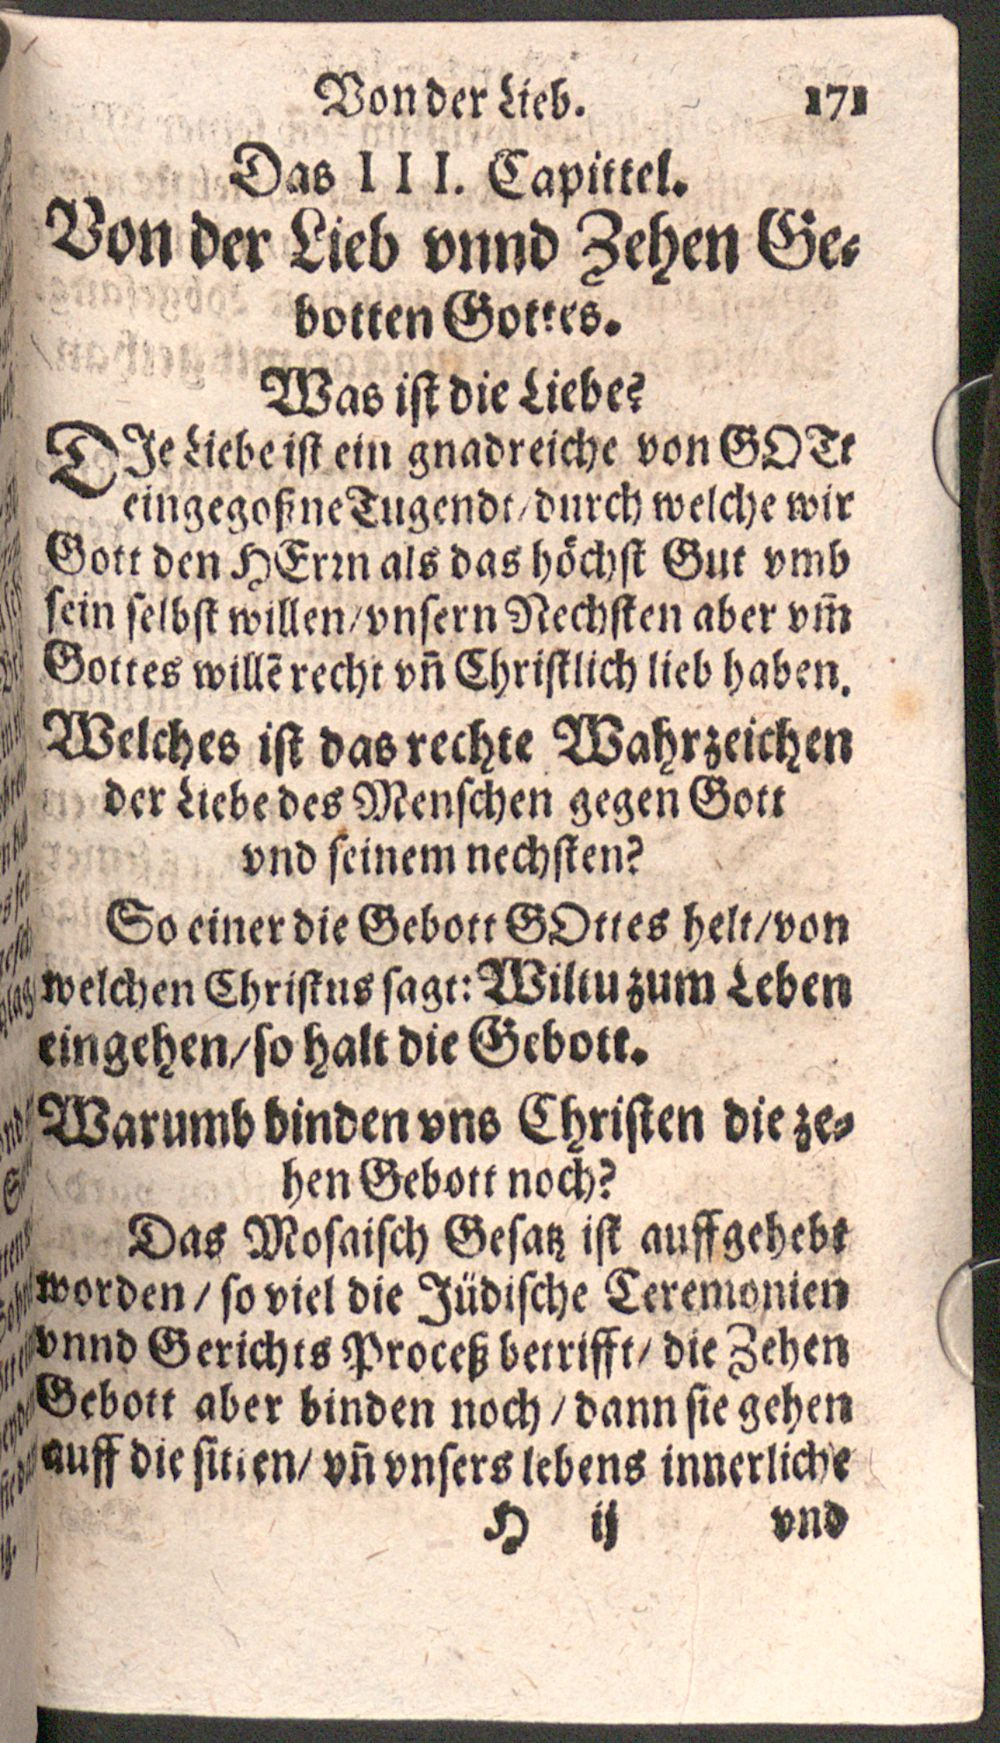 Von der Lieb. 171
Das III. Capittel.
Von der Lieb vnnd Zehen Ge-
botten Gottes.
Was ist die Liebe?
DJe Liebe ist ein gnadreiche von GOTt
eingegoßne Tugendt/durch welche wir
Gott den HErꝛn als das höchst Gut vmb
sein selbst willen/vnsern Nechsten aber vm̃
Gottes willē recht vñ Christlich lieb haben.
Welches ist das rechte Wahrzeichen
der Liebe des Menschen gegen Gott
vnd seinem nechsten?
So einer die Gebott GOttes helt/von
welchen Christus sagt: Wiltu zum Leben
eingehen/so halt die Gebott.
Warumb binden vns Christen die ze-
hen Gebott noch?
Das Mosaisch Gesatz ist auffgehebt
worden/so viel die Jüdische Ceremonien
vnnd Gerichts Proceß betrifft/die Zehen
Gebott aber binden noch/dann sie gehen
auff die sitten/vñ vnsers lebens innerliche
H ij vnd